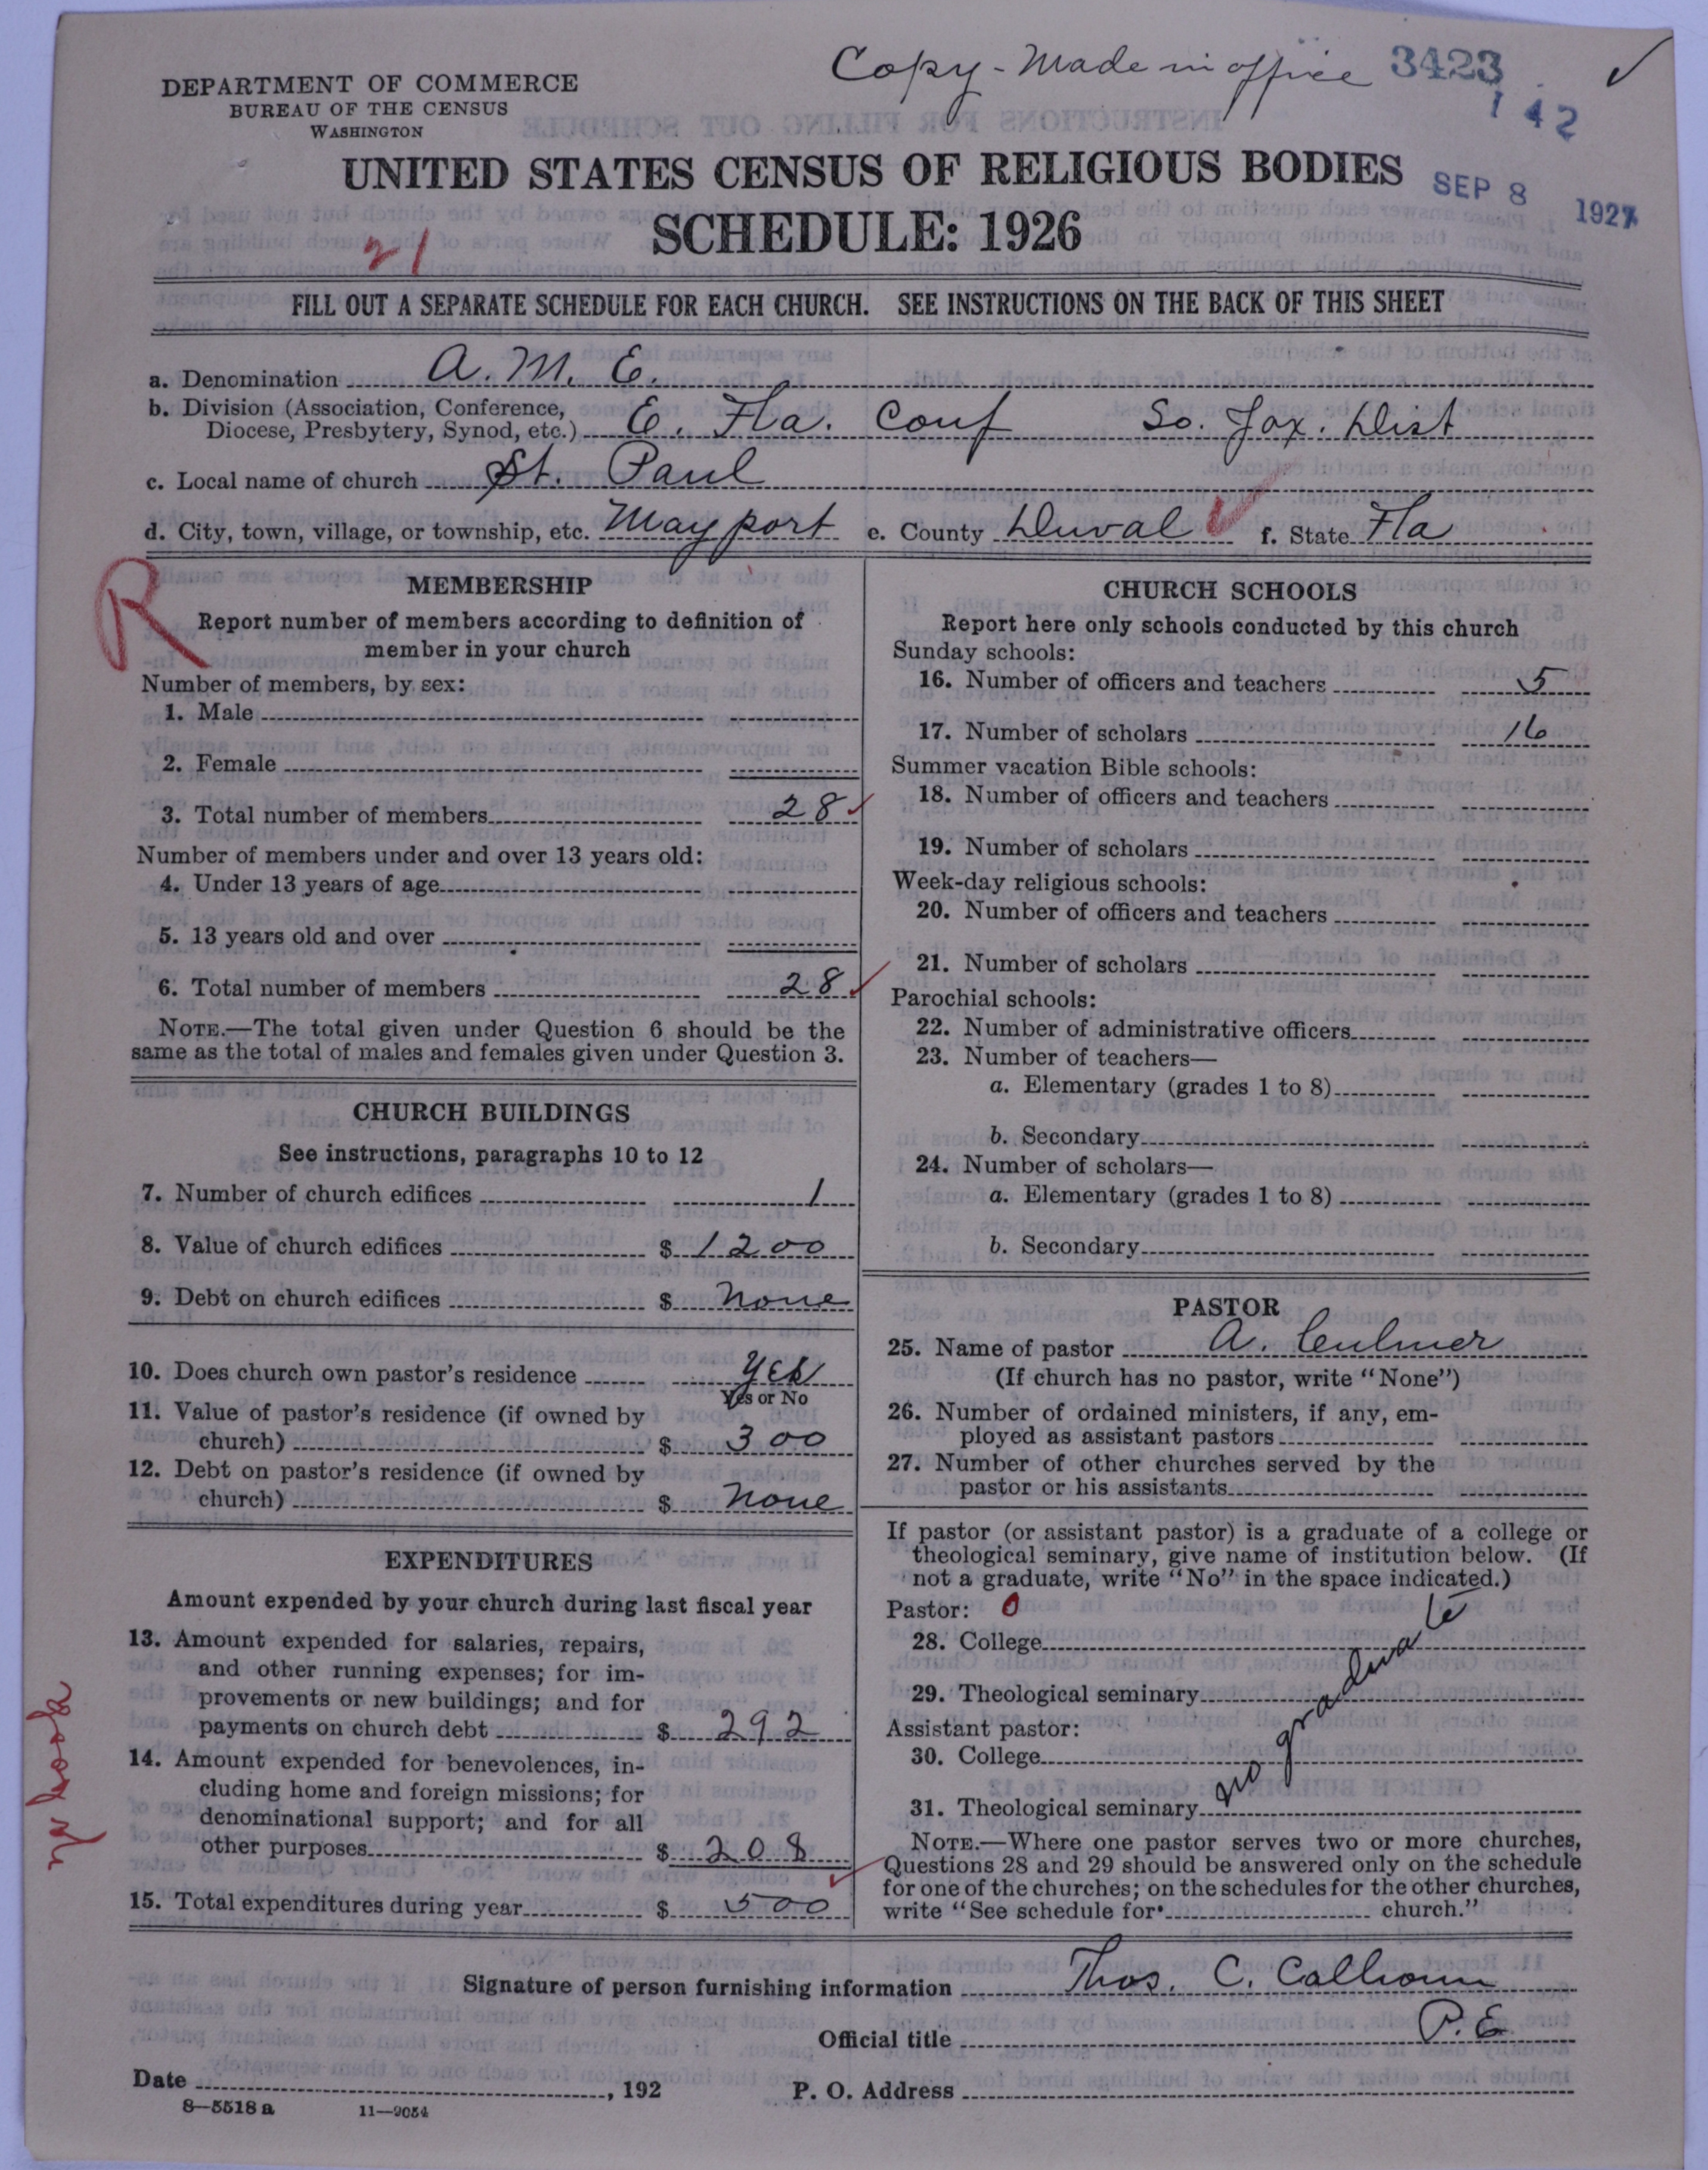 Copy - Made in office 3423
142
DEPARTMENT OF COMMERCE
BUREAU OF THE CENSUS
WASHINGTON
UNITED STATES CENSUS OF RELIGIOUS BODIES
SEP 8 1927
SCHEDULE: 1926
21
FILL OUT A SEPARATE SCHEDULE FOR EACH CHURCH. SEE INSTRUCTIONS ON THE BACK OF THIS SHEET
a. Denomination A. M. E.
b. Division (Association, Conference,
Diocese, Presbytery, Synod, etc.) E. Fla. Conf So. Jax. Dist
c. Local name of church St. Paul
d. City, town, village, or township, etc. Mayport e. County Duval f. State Fla
R
MEMBERSHIP
Report number of members according to definition of
member in your church
Number of members, by sex:
1. Male
2. Female
3. Total number of members 28
Number of members under and over 13 years old:
4. Under 13 years of age
5. 13 years old and over
6. Total number of members 28
NOTE.—The total given under Question 6 should be the
same as the total of males and females given under Question 3.
CHURCH BUILDINGS
See instructions, paragraphs 10 to 12
7. Number of church edifices 1
8. Value of church edifices $ 1200
9. Debt on church edifices $ none
10. Does church own pastor's residence yes
Yes or No
11. Value of pastor's residence (if owned by
church) $ 300
12. Debt on pastor's residence (if owned by
church) $ none
EXPENDITURES
Amount expended by your church during last fiscal year
13. Amount expended for salaries, repairs,
and other running expenses; for im-
provements or new buildings; and for
payments on church debt $ 292
14. Amount expended for benevolences, in-
cluding home and foreign missions; for
denominational support; and for all
other purposes $ 208
15. Total expenditures during year $ 500
CHURCH SCHOOLS
Report here only schools conducted by this church
Sunday schools:
16. Number of officers and teachers 5
17. Number of scholars 16
Summer vacation Bible schools:
18. Number of officers and teachers
19. Number of scholars
Week-day religious schools:
20. Number of officers and teachers
21. Number of scholars
Parochial schools:
22. Number of administrative officers
23. Number of teachers—
a. Elementary (grades 1 to 8)
b. Secondary
24. Number of scholars—
a. Elementary (grades 1 to 8)
b. Secondary
PASTOR
25. Name of pastor A. Culmer
(If church has no pastor, write "None")
26. Number of ordained ministers, if any, em-
ployed as assistant pastors
27. Number of other churches served by the
pastor or his assistants
If pastor (or assistant pastor) is a graduate of a college or
theological seminary, give name of institution below. (If
not a graduate, write "No" in the space indicated.)
Pastor: 0
28. College
29. Theological seminary
Assistant pastor:
30. College
31. Theological seminary
no graduate
NOTE.—Where one pastor serves two or more churches,
Questions 28 and 29 should be answered only on the schedule
for one of the churches; on the schedules for the other churches,
write "See schedule for church."
Signature of person furnishing information Thos. C. Calhoun
Official title P. E
Date , 192 P. O. Address
8—5518 a 11—9054